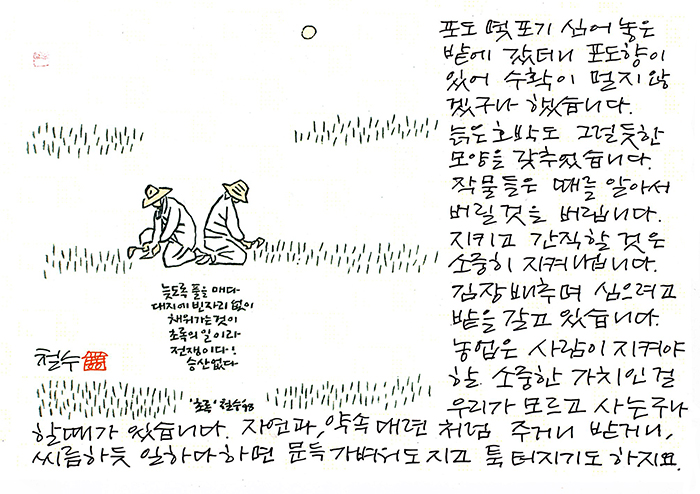 포도 몇 포기 심어 놓은
밭에 갔더니 포도향이
있어 수확이 멀지 않
겠구나 했습니다.
늙은호박도 그럴듯한
모양을 갖추었습니다.
작물들은 때를 알아서
버릴것을 버립니다.
지키고 간직할 것은
소중히 지켜냅니다.
김장배추며 심으려고
밭을 갈고 있습니다.
농업은 사람이 지켜야
할 소중한 가치인 걸
우리가 모르고 사는구나
할때가 있습니다. 자연과, 약속대련 처럼 주거니 받거니,
씨름하듯 일하다하면 문득 가벼워도지고 툭 터지기도 하지요.
늦도록 풀을 매다
대지에 빈자리 없이
채워가는것이
초록의 일이라
전쟁이다!
승산없다
'초록' 철수
철수